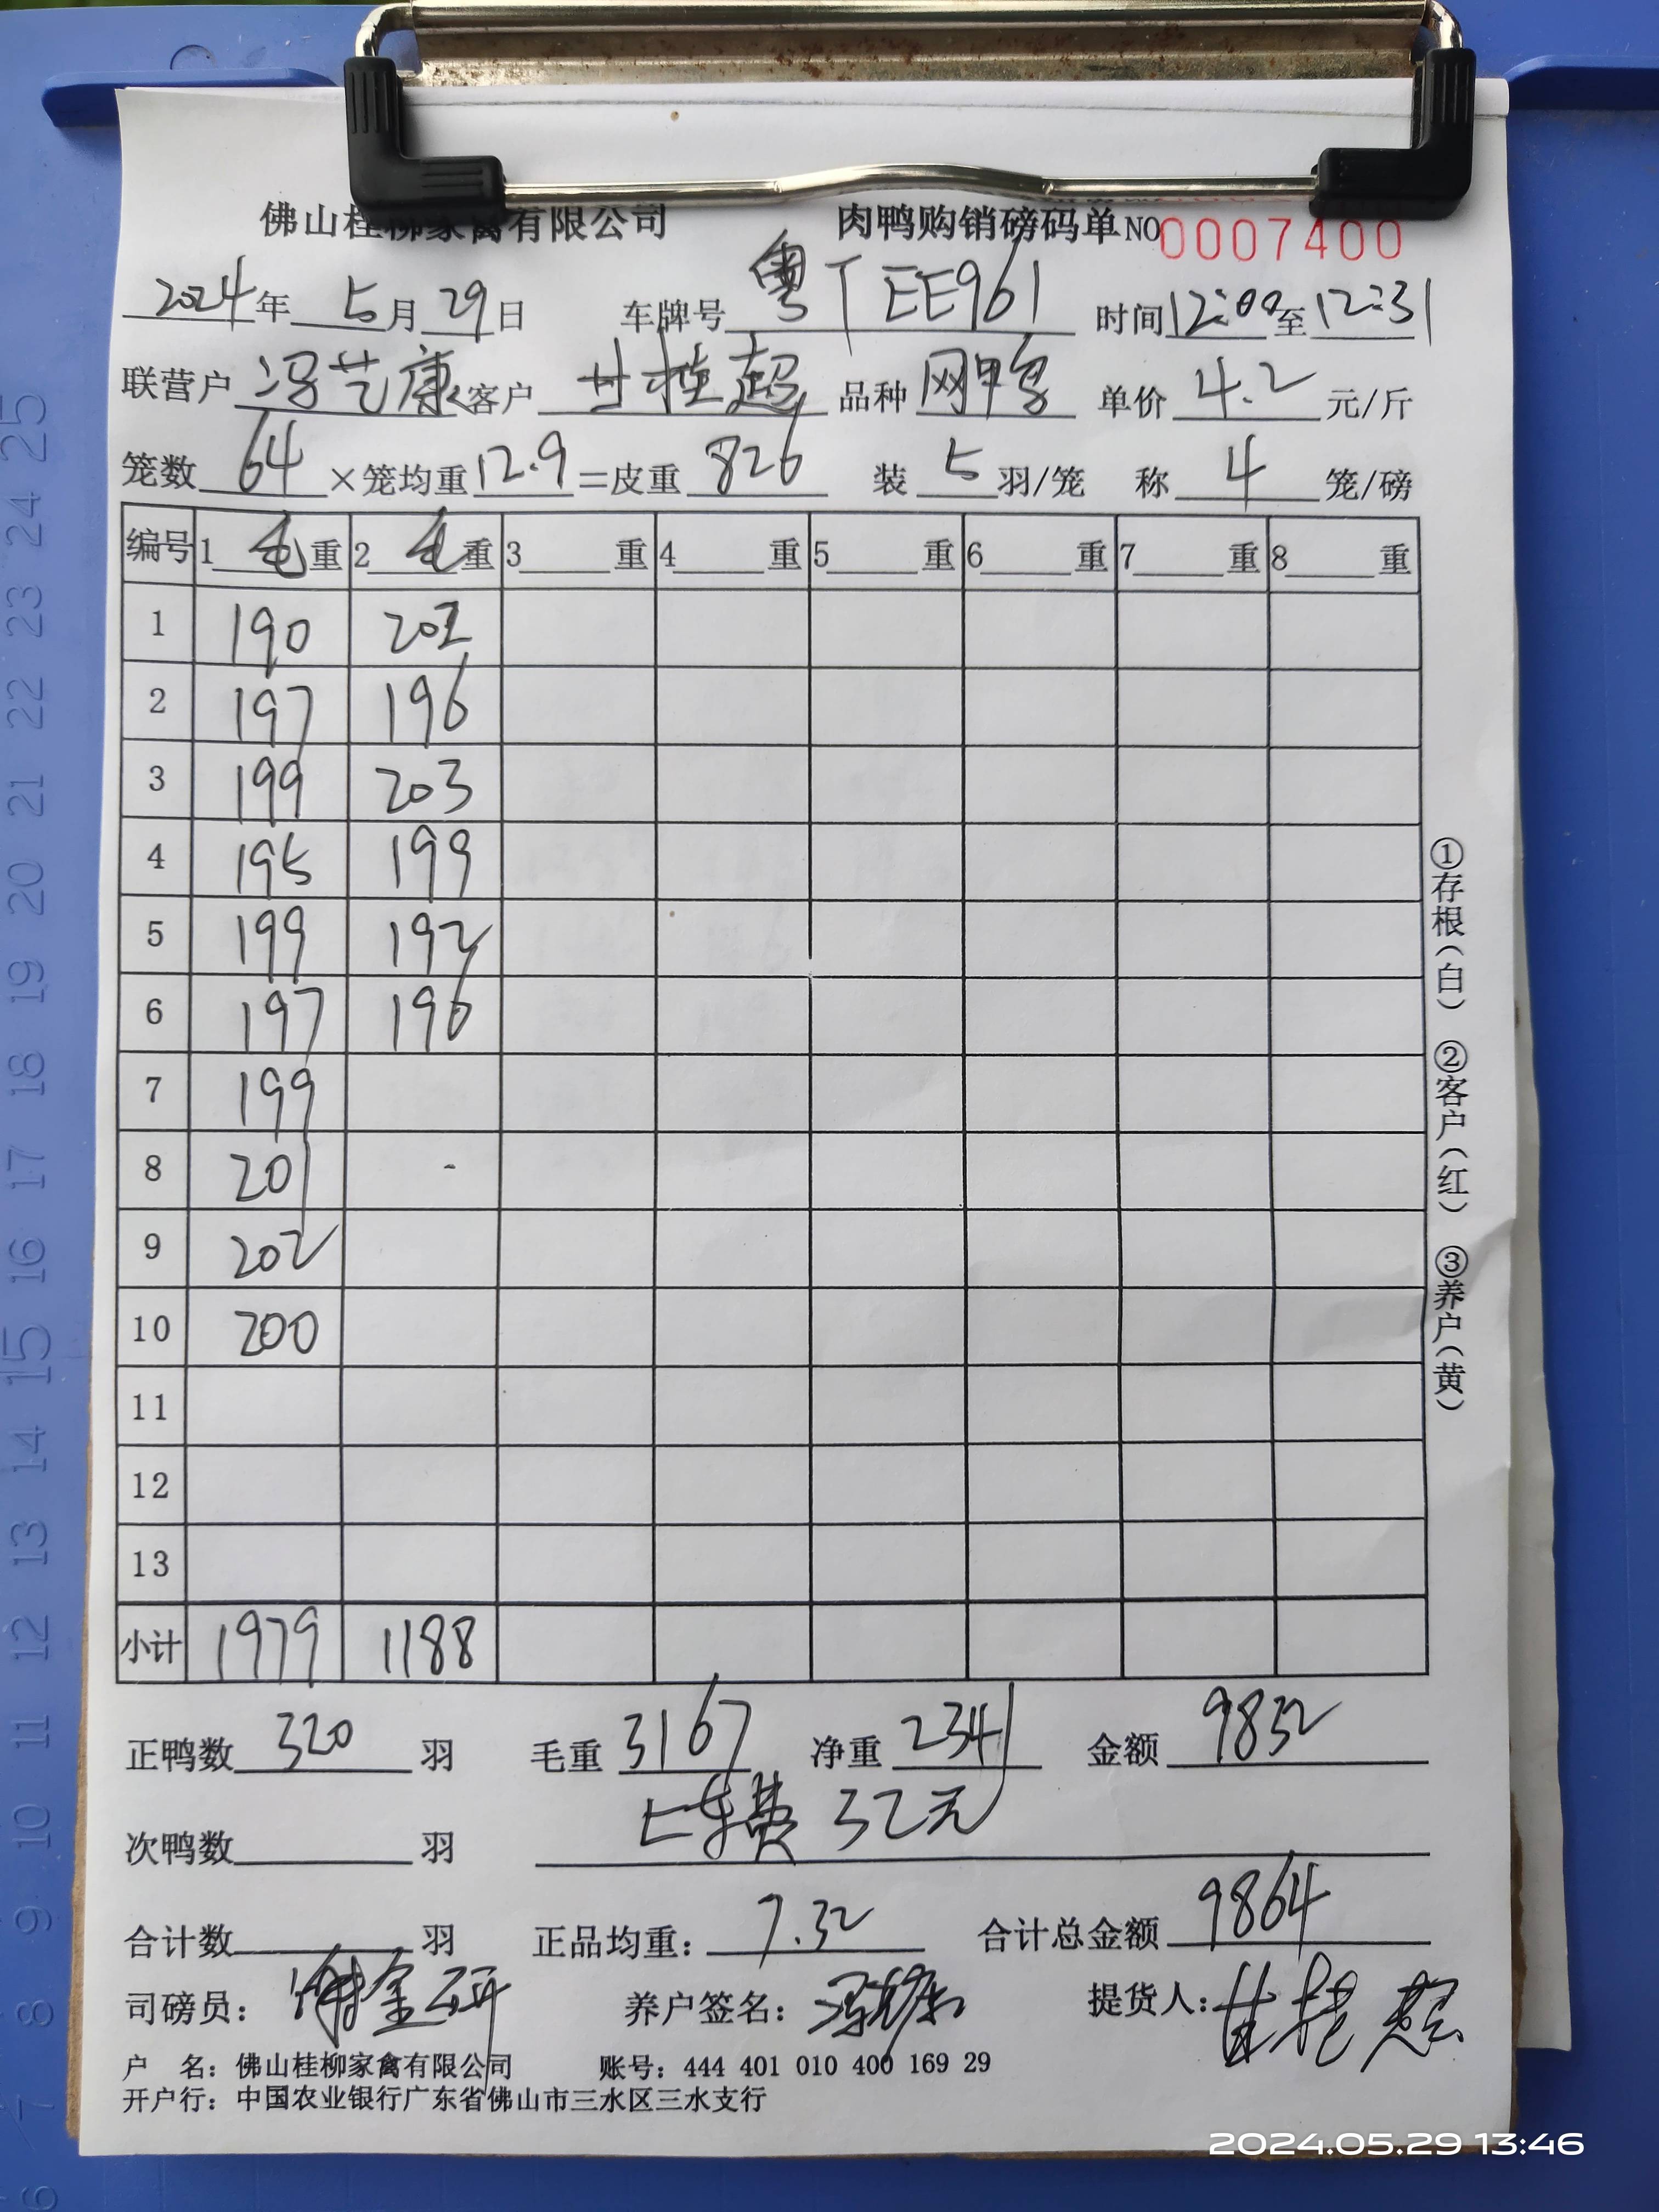 佛山桂柳家禽有限公司 肉鸭购销磅码单 NO 0007400
2024年 5月 29日 车牌号 粤TEE961 时间 12:00 至 12:31
联营户 冯艺康 客户 甘桂超 品种 网鸭 单价 4.2 元/斤
笼数 64 ×笼均重 12.9 =皮重 826 装 5 羽/笼 称 4 笼/磅
编号 1 毛重 2 毛重 3 重 4 重 5 重 6 重 7 重 8 重
1 190 202
2 197 196
3 199 203
4 195 199
5 199 192
6 197 196
7 199
8 201
9 202
10 200
11
12
13
小计 1979 1188
正鸭数 320 羽 毛重 3167 净重 2341 金额 9832
次鸭数 羽 上车费 32元
合计数 羽 正品均重: 7.32 合计总金额 9864
司磅员: 养户签名: 提货人:
户 名: 佛山桂柳家禽有限公司 账号: 444 401 010 400 169 29
开户行: 中国农业银行广东省佛山市三水区三水支行
①存根(白) ②客户(红) ③养户(黄)
25
24
23
22
21
20
19
18
17
16
15
14
13
12
11
10
9
8
7
6
2024.05.29 13:46